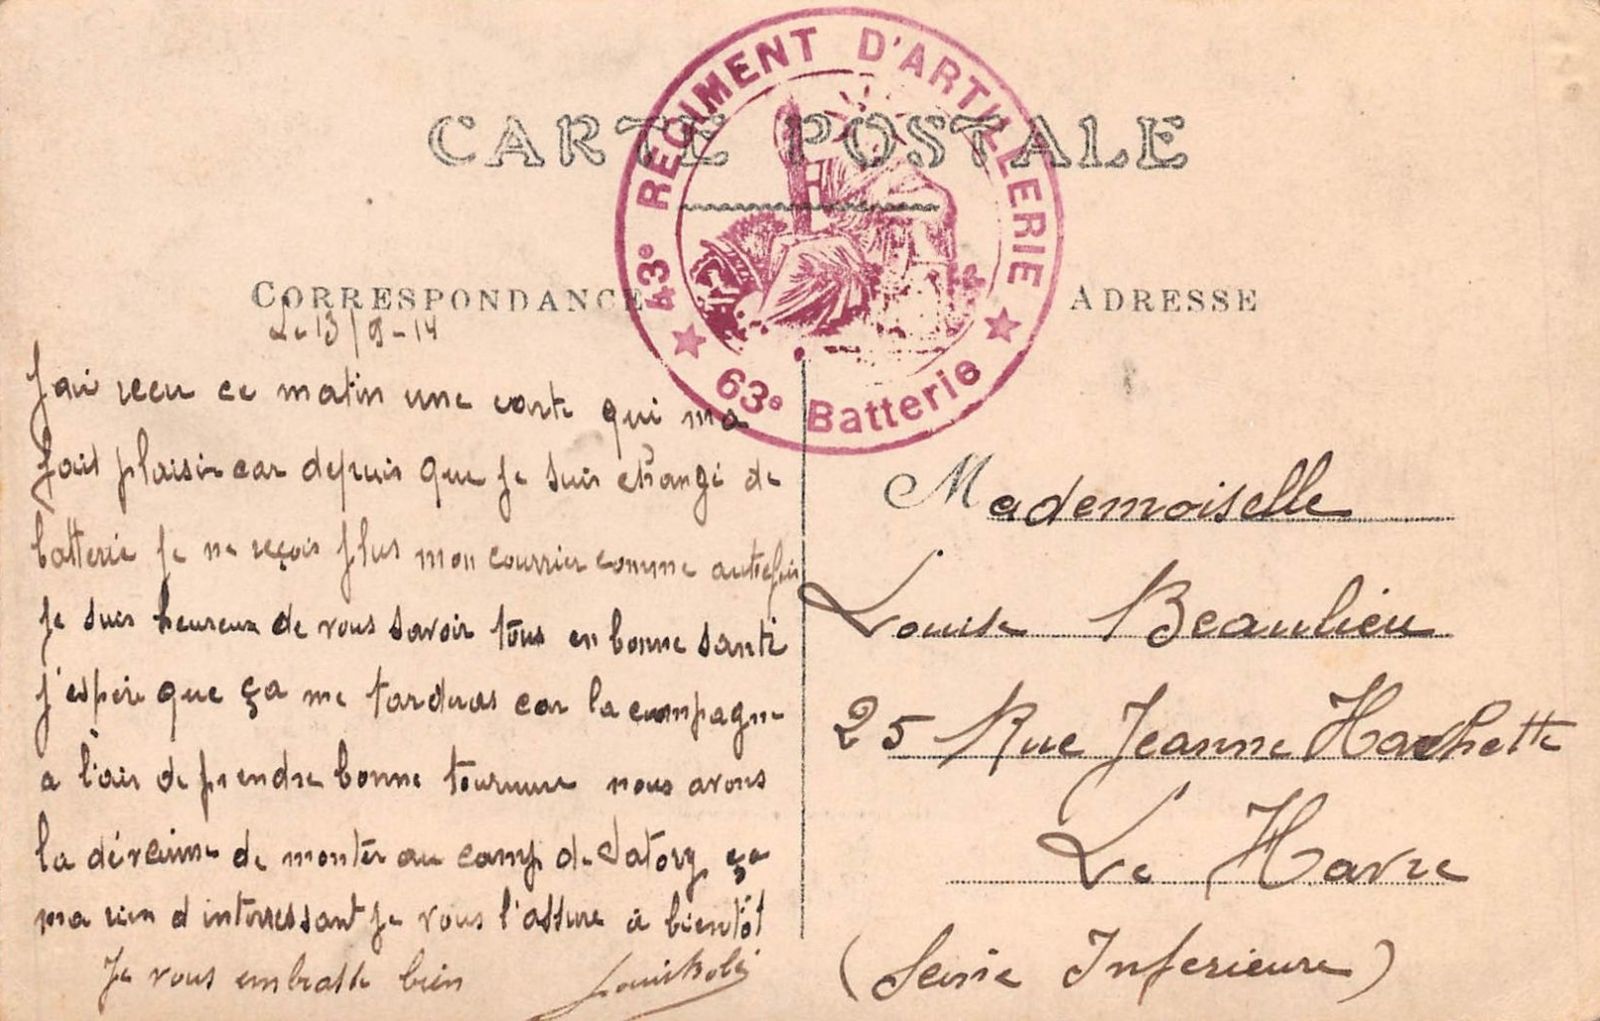 43e REGIMENT D'ARTILLERIE
63e Batterie
CARTE POSTALE
CORRESPONDANCE
ADRESSE
Le 13/9-14
J'ai recu ce matin une carte qui ma
fait plaisir car depuis que je suis changé de
batterie je ne reçois plus mon courrier comme autrefois
je suis heureux de vous savoir tous en bonne santé
j'espère que ça me car la campagne
a l'air de prendre bonne tournure nous avons
la déveine de monter au camp de Satory ça
na rien d interressant je vous l'assure à bientôt
Je vous embrasse bien
Mademoiselle
Louise Beaulieu
25 Rue Jeanne Hachette
Le Havre
(Seine Inferieure)